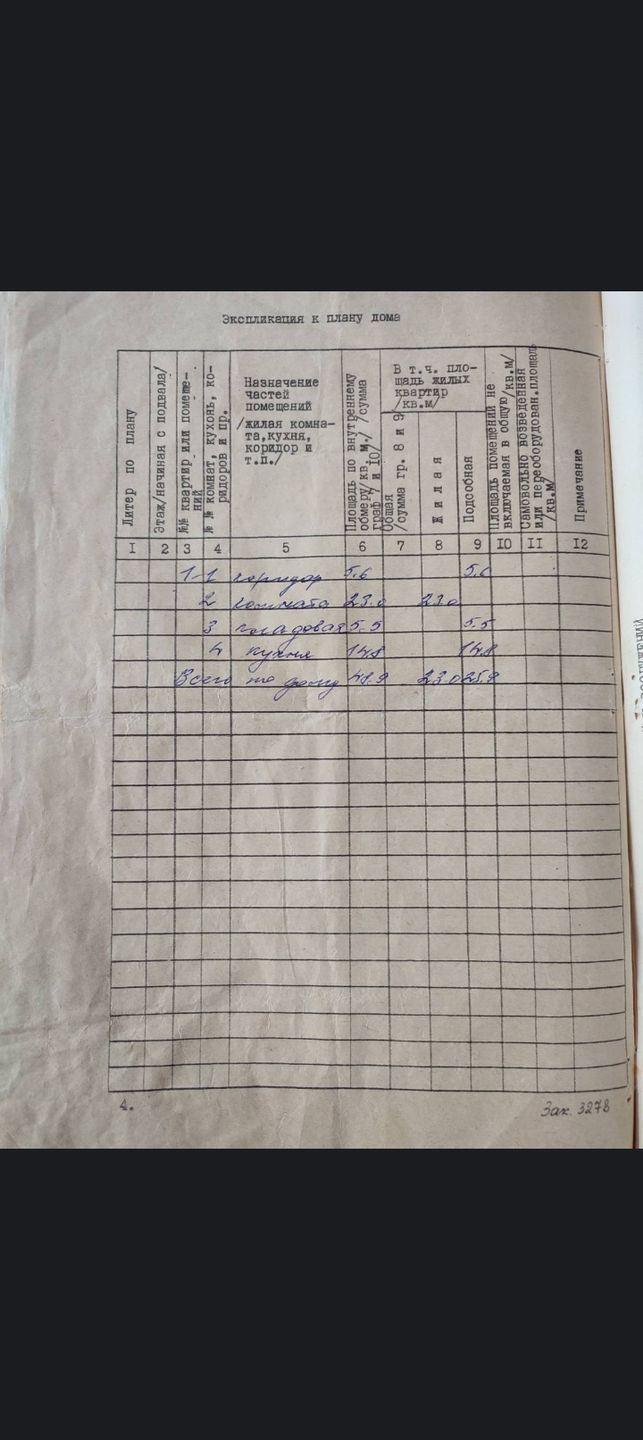 Экспликация к плану дома
Литер по плану
Этаж/начиная с подвала/
№№ квартир или помеще-
ний
№ № комнат, кухонь, ко-
ридоров и пр.
Назначение
частей
помещений
/жилая комна-
та,кухня,
коридор и
т.п./
Площадь по внутреннему
обмеру/кв. м./ /сумма
граф 7 и 10/
В т.ч. пло-
щадь жилых
квартир
/кв.м/
Общая
/сумма гр. 8 и 9
Жилая
Подсобная
Площадь помещений не
включаемая в общую/кв.м/
Самовольно возведенная
или переоборудован.площадь
/кв.м/
Примечание
I 2 3 4 5 6 7 8 9 IO II I2
1-1 коридор 5.6 5.6
2 комната 23.0 23.0
3 кладовая 5.5 5.5
4 кухня 14.8 14.8
Всего по дому 48.9 23.0 25.9
4.
Зак. 3278